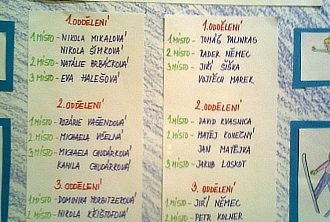 1. ODDĚLENÍ
1 MÍSTO - NIKOLA MIKALOVÁ
NIKOLA ŠIMKOVÁ
2 MÍSTO - NATÁLIE BRBÁČKOVÁ
3 MÍSTO - EVA HALEŠOVÁ
2. ODDĚLENÍ
1 MÍSTO - ROZÁRIE VAŠENDOVÁ
2 MÍSTO - MICHAELA VŠELNÁ
3 MÍSTO - MICHAELA CHUDÁRKOVÁ
KAMILA CHUDÁRKOVÁ
3. ODDĚLENÍ
1 MÍSTO - DOMINIKA MORBITZEROVÁ
2 MÍSTO - NIKOLA KŘIŠTOFOVÁ
1. ODDĚLENÍ
1 MÍSTO - TOMÁŠ PALINKAS
2 MÍSTO - RADEK NĚMEC
3 MÍSTO - JIŘÍ ŠIŠKA
VOJTĚCH MAREK
2. ODDĚLENÍ
1 MÍSTO - DAVID KVASNICA
2 MÍSTO - MATĚJ KONEČNÝ
JAN MATĚJKA
3 MÍSTO - JAKUB LOSKOT
3. ODDĚLENÍ
1 MÍSTO - JIŘÍ NĚMEC
2 MÍSTO - PETR KOLNER